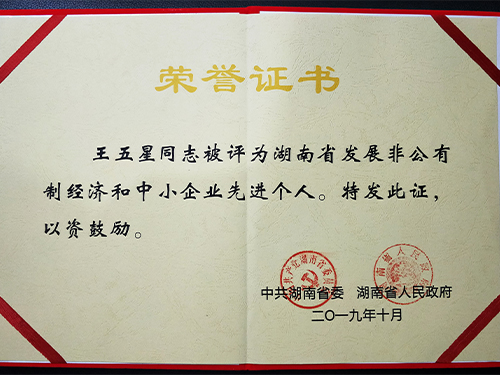 荣誉证书
王五星同志被评为湖南省发展非公有
制经济和中小企业先进个人。特发此证，
以资鼓励。
中共湖南省委 湖南省人民政府
二〇一九年十月